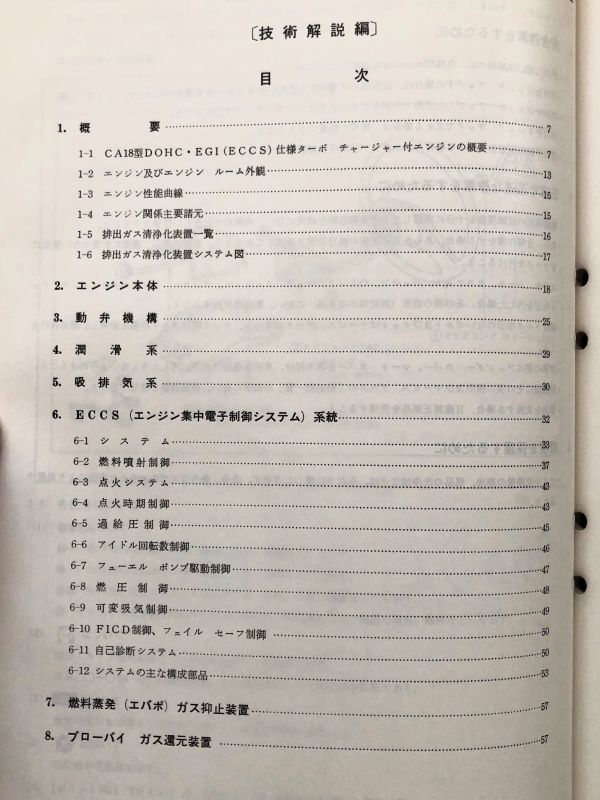 〔技術解説編〕
目 次
1. 概 要 7
1-1 CA18型DOHC・EGI(ECCS)仕様ターボ チャージャー付エンジンの概要 7
1-2 エンジン及びエンジン ルーム外観 13
1-3 エンジン性能曲線 15
1-4 エンジン関係主要諸元 15
1-5 排出ガス清浄化装置一覧 16
1-6 排出ガス清浄化装置システム図 17
2. エンジン本体 18
3. 動弁機構 25
4. 潤滑系 29
5. 吸排気系 30
6. ECCS(エンジン集中電子制御システム)系統 32
6-1 システム 33
6-2 燃料噴射制御 37
6-3 点火システム 43
6-4 点火時期制御 43
6-5 過給圧制御 45
6-6 アイドル回転数制御 46
6-7 フューエル ポンプ駆動制御 47
6-8 燃圧制御 48
6-9 可変吸気制御 49
6-10 FICD制御、フェイル セーフ制御 50
6-11 自己診断システム 50
6-12 システムの主な構成部品 53
7. 燃料蒸発(エバポ)ガス抑止装置 57
8. ブローバイ ガス還元装置 57